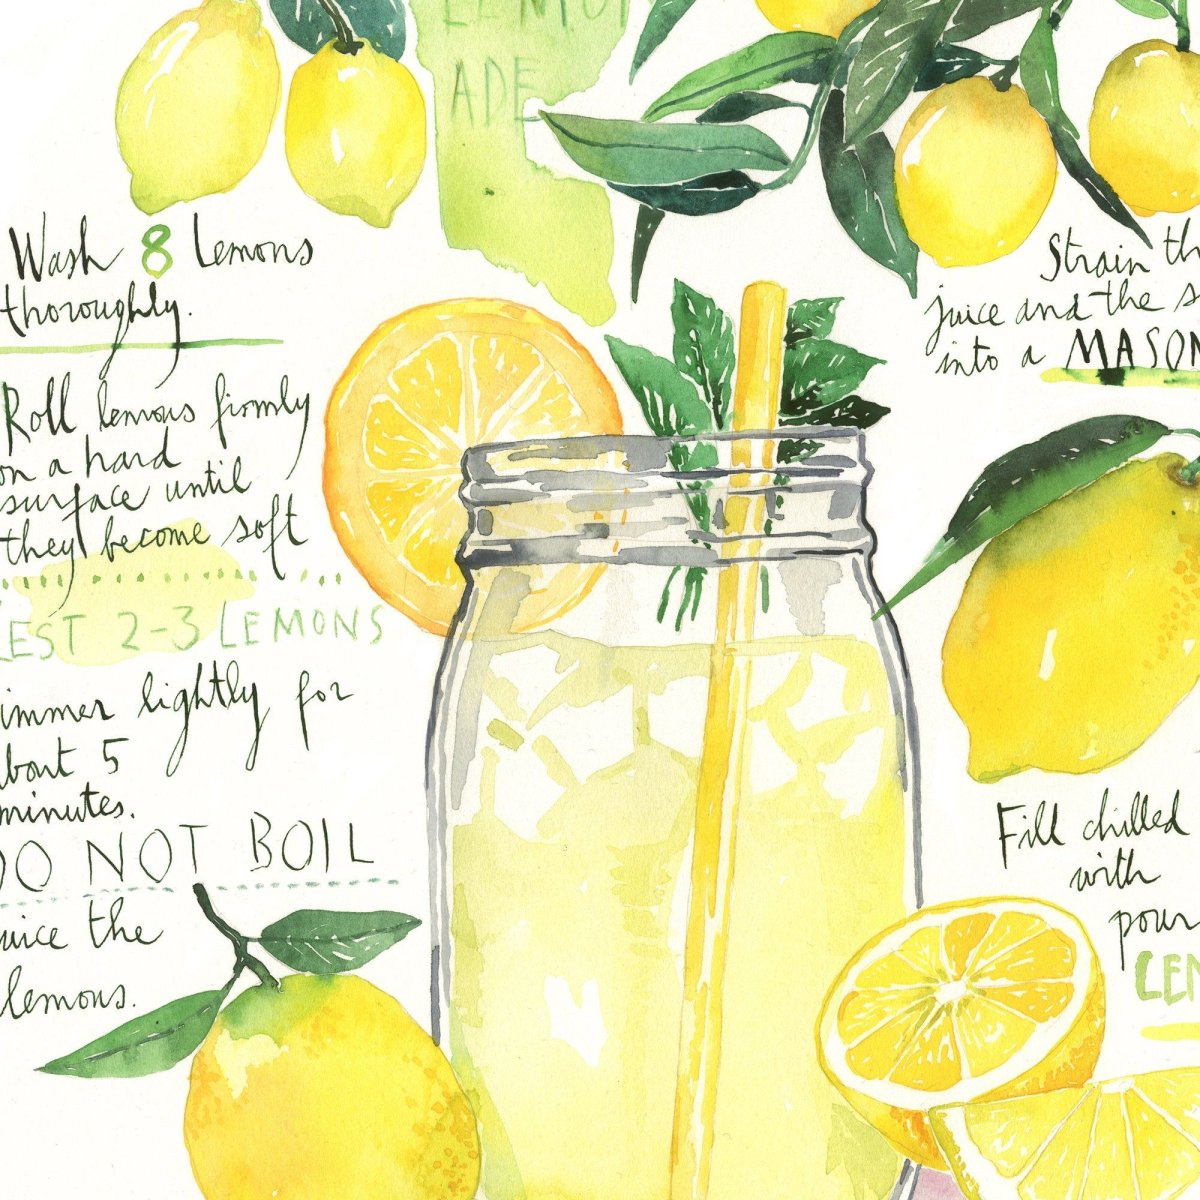 LEMON
ADE
Wash 8 lemons
thoroughly.
Roll lemons firmly
on a hard
surface until
they become soft
ZEST 2-3 LEMONS
immer lightly for
bout 5
minutes.
DO NOT BOIL
uice the
lemons.
Strain th
juice and the s
into a MASON
Fill chilled
with
pour
LEM